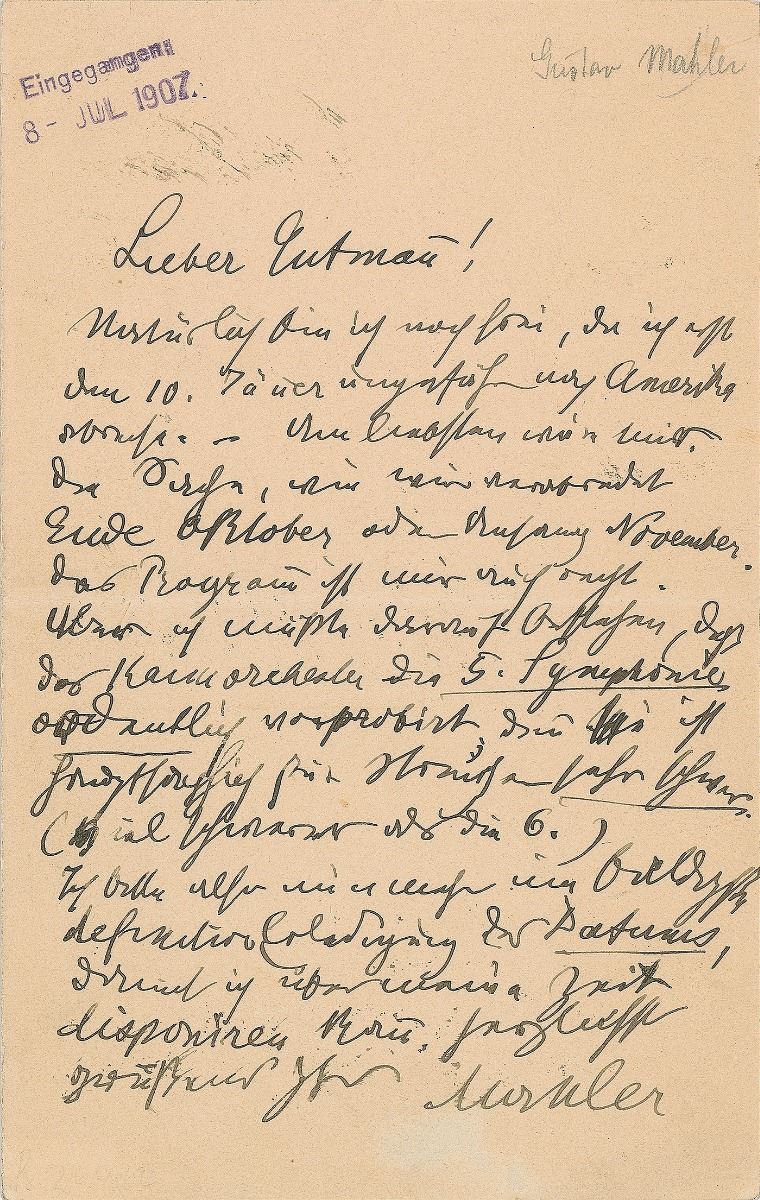 Eingegangen:
8 - JUL 1907.
Gustav Mahler
Lieber Gutmañ!
Natürlich bin ich noch frei, da ich erst
den 10. Jäner ungefähr nach Amerika
– Am liebsten wäre mir
die Sache, wie wir verabredet
Ende Oktober oder Anfang November.
Das Program̄ ist mir auch recht.
Aber ich müßte darauf bestehen, daß
das Kaimorchester die 5. Symphonie
ordentlich vorprobirt, den̄ sie ist
hauptsächlich für Streicher sehr schwer.
(viel schwerer als die 6.)
Ich bitte also nunmehr um baldigste
definitive Erledigung des Datums,
damit ich über meine Zeit
disponiren kan̄. Herzlichst
grüßend Ihr Mahler